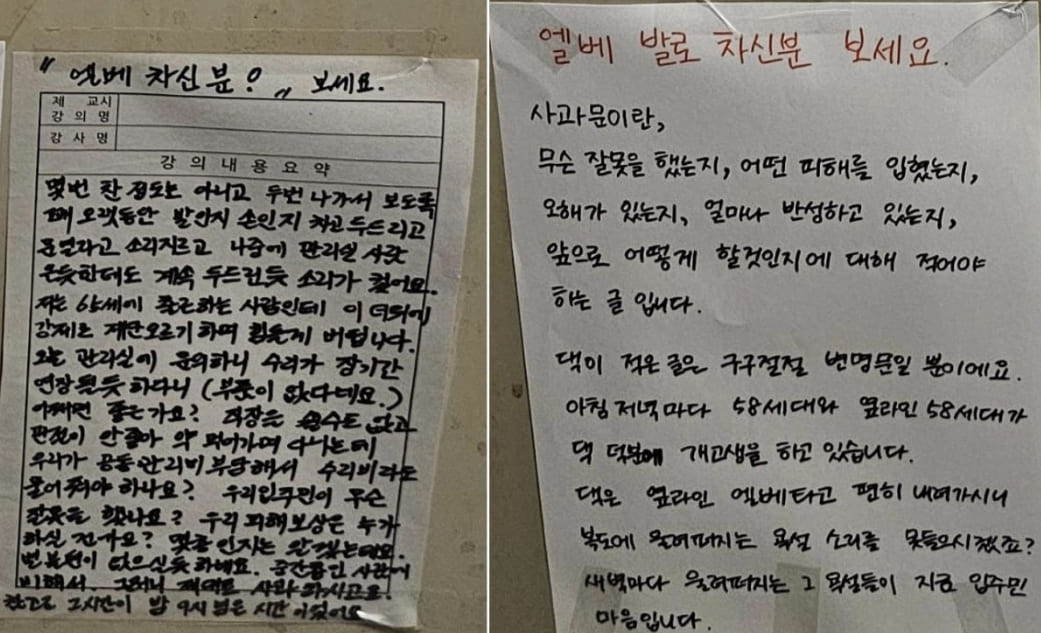 " 엘베 차신분? „ 보세요.
제 교시
강의명
강사명
강의내용요약
몇번 찬 정도는 아니고 두번 나가서 보도록
꽤 오랫동안 발인지 손인지 차고 두드리고
문열라고 소리지르고 나중에 관리실 사람
온듯한데도 계속 두드린듯 소리가 컸어요.
저는 65세에 출근하는 사람인데 이 더위에
강제로 계단오르기하며 힘들게 버팁니다.
오늘 관리실에 문의하니 수리가 장기간
연장될듯 하다니 (부품이 없다네요.)
어쩌면 좋은가요? 직장을 쉴수도 없고
관절이 안좋아 약 먹어가며 다니는데
우리가 공동관리비 부담해서 수리비라도
물어줘야 하나요? 우리입주민이 무슨
잘못을 했나요? 우리 피해보상은 누가
하실 건가요? 몇층인지는 모르겠는데요.
별 불편이 없으신듯 하네요. 중간층인 사람에
비해서 그러니 제대로 사과하시고요
참고로 그시간이 밤 9시 넘은 시간이었어요
엘베 발로 차신분 보세요.
사과문이란,
무슨 잘못을 했는지, 어떤 피해를 입혔는지,
오해가 있는지, 얼마나 반성하고 있는지,
앞으로 어떻게 할것인지에 대해 적어야
하는 글 입니다.
댁이 적은 글은 구구절절 변명문일 뿐이에요.
아침 저녁마다 58세대와 옆라인 58세대가
댁 덕분에 개고생을 하고 있습니다.
댁은 옆라인 엘베타고 편히 내려가시니
복도에 울려퍼지는 욕설 소리를 못들으시겠죠?
새벽마다 울려퍼지는 그 욕설들이 지금 입주민
마음입니다.